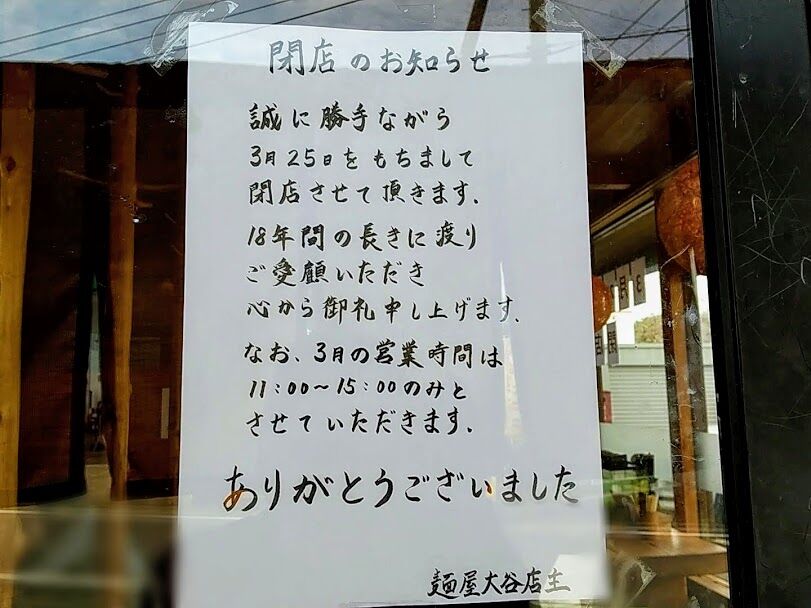 閉店のお知らせ
誠に勝手ながら
3月25日をもちまして
閉店させて頂きます.
18年間の長きに渡り
ご愛顧いただき
心から御礼申し上げます.
なお、3月の営業時間は
11:00～15:00のみと
させていただきます.
ありがとうございました
麺屋大谷店主